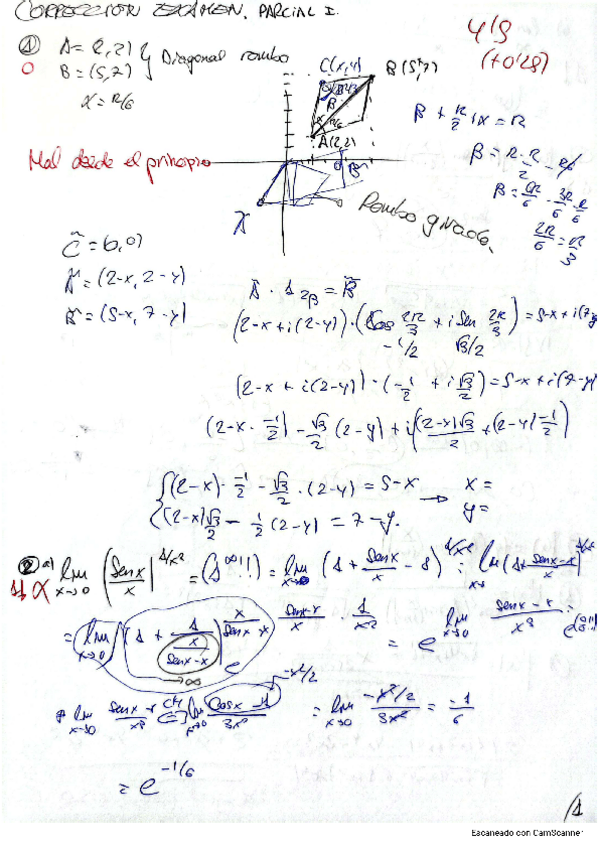 CORRECCIÓN EXAMEN. PARCIAL I.
4'9
(+0'28)
① A = (2,2) } Diagonal rombo
0
B = (5,7)
α = π/6
C(x,y)
B(5,7)
A(2,2)
π/6
β
β + π/2 + α = π
β = π - π/2 - π/6
β = 6π/6 - 3π/6 - π/6
2π/6 = π/3
Mal desde el principio
Rombo girado.
C = (0,0)
A = (2-x, 2-y)
B = (5-x, 7-y)
A · 1 2β = B
(2-x+i(2-y))·(Cos 2π/3 + i Sen 2π/3) = 5-x+i(7-y
-1/2 √3/2
(2-x + i(2-y))·(-1/2 + i √3/2) = 5-x+i(7-y)
(2-x · -1/2) - √3/2 (2-y) + i((2-x)√3/2 + (2-y) -1/2)
{ (2-x)· -1/2 - √3/2 ·(2-y) = 5-x → x =
(2-x)√3/2 - 1/2 (2-y) = 7-y. y =
② a) lim x→0 (Senx/x)^1/x² = (1^∞!!) = lim x→0 (1 + Senx/x - 1)^1/x² = lim x→0 (1 + Senx-x/x)^1/x²
= lim x→0 (1 + 1/(x/Senx-x))^(x/Senx-x · Senx-x/x · 1/x²) = e^lim x→0 Senx-x/x³
→∞
lim x→0 Senx-x/x³ = lim x→0 Cosx-1/3x² = lim x→0 -x²/2/3x² = -1/6
-x²/2
= e^-1/6
/1
Escaneado con CamScanner